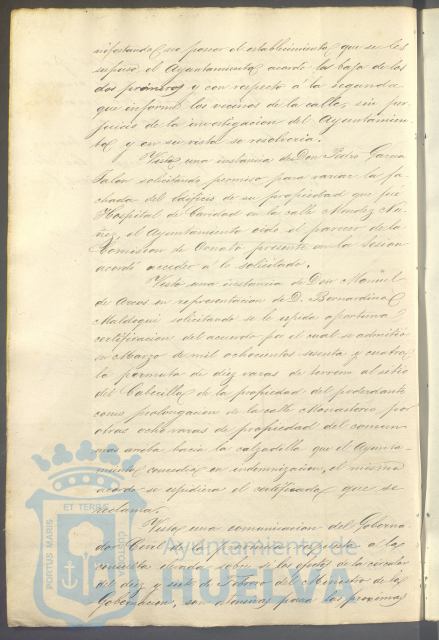 nifestando no poseer el establecimiento que se les
supuso, el Ayuntamiento acordó la baja de los
dos primeros y con respecto á la segunda
que informe los vecinos de la calle, sin per
juicio de la investigacion del Ayuntamien
to y en su vista se resolveria.
Vista una instancia de Don Pedro Garcia
Jalon solicitando permiso para variar la fa
chada del edificio de su propiedad que fué
Hospital de Caridad en la calle Mendez Nu
ñez, el Ayuntamiento oido el parecer de la
Comision de Ornato presente en la Sesion
acordó acceder á lo solicitado.
Vista una instancia de Don Manuel
de Arcos en representacion de D. Bernardino
solicitando se le expida oportuna
certificacion del acuerdo por el cual se admitió
en Marzo de mil ochocientos sesenta y cuatro
la permuta de diez varas de terreno al sitio
del Cabecillo de la propiedad del poderdante
como prolongacion de la calle Monasterio por
otras ocho varas de propiedad del comun
mas arriba hacia la calzadilla que el Ayunta-
miento concedió en indemnizacion, el mismo
acordó se expidiera el certificado que se
reclama.
Vista una comunicacion del Goberna
dor Civil de la respecto á la
consulta elevada sobre si los efectos de la circular
del diez y siete de Febrero del Ministro de la
Gobernacion, son para las proximas
PORTUS MARIS
ET TERRE
CUSTODIA
Ayuntamiento de
HUELVA